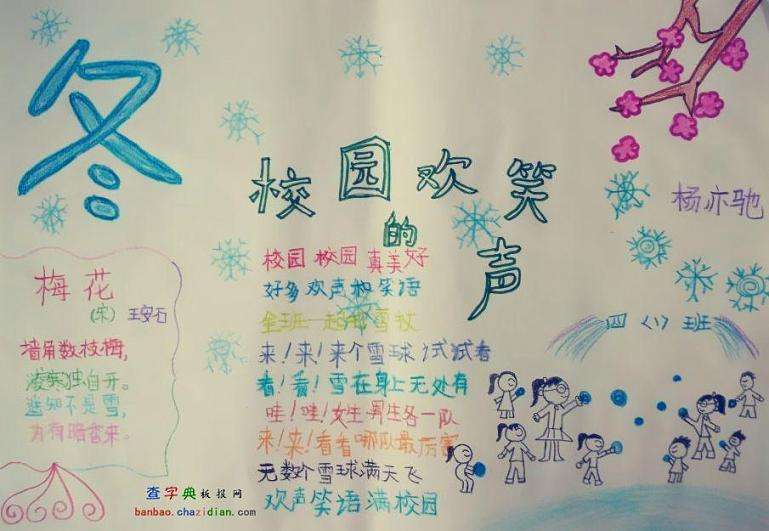 冬
校园欢笑
的
声
杨亦驰
梅花
(宋) 王安石
墙角数枝梅,
凌寒独自开。
遥知不是雪,
为有暗香来。
校园 校园 真美好
好多欢声和笑语
全班一起 雪杖
来!来!来个雪球试试看
看!看!雪在身上无处有
哇!哇!女生男生各一队
来!来!看看哪队最厉害
无数个雪球满天飞
欢声笑语满校园
四(1)班
查字典板报网
banbao.chazidian.com